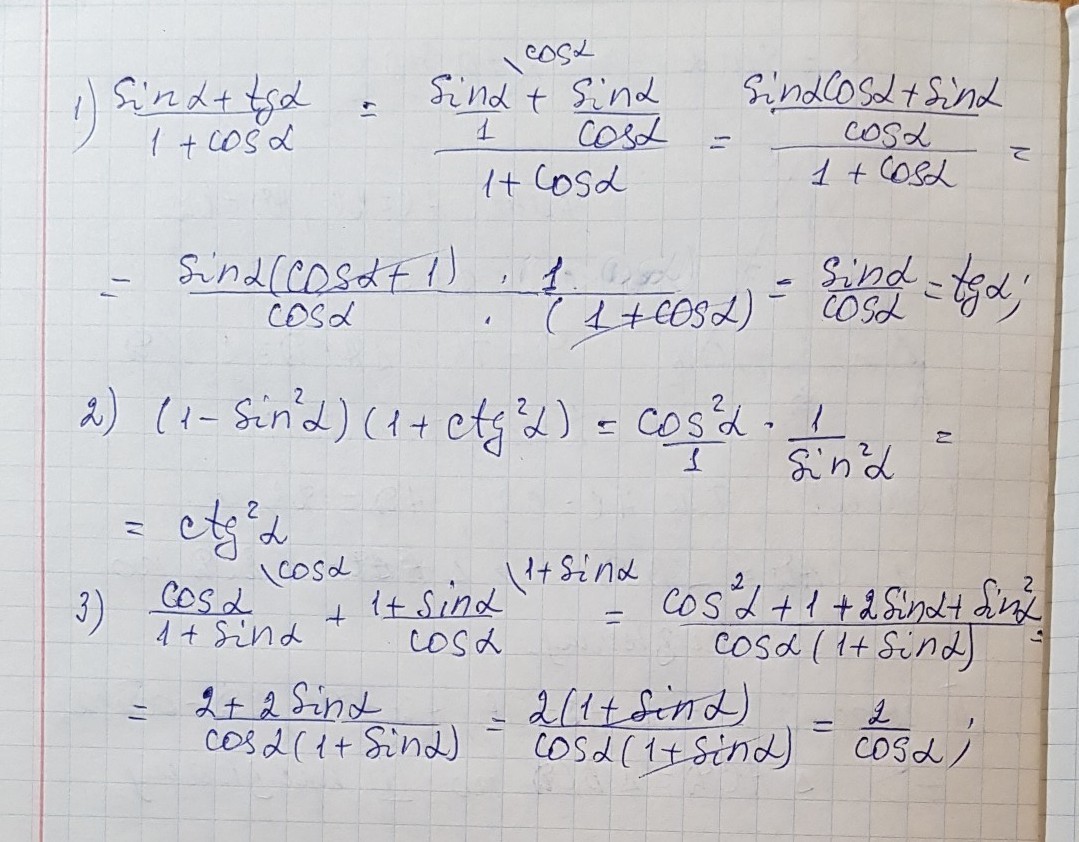 \cosα
1) (sinα + tgα)/(1 + cosα) = (sinα/1 + sinα/cosα)/(1 + cosα) = ((sinαcosα + sinα)/cosα)/(1 + cosα) =
= sinα(cosα + 1)/cosα · 1/(1 + cosα) = sinα/cosα = tgα;
2) (1 - sin²α)(1 + ctg²α) = cos²α/1 · 1/sin²α =
= ctg²α
\cosα \1 + sinα
3) cosα/(1 + sinα) + (1 + sinα)/cosα = (cos²α + 1 + 2sinα + sin²α)/(cosα(1 + sinα)) =
= (2 + 2sinα)/(cosα(1 + sinα)) = 2(1 + sinα)/(cosα(1 + sinα)) = 2/cosα;